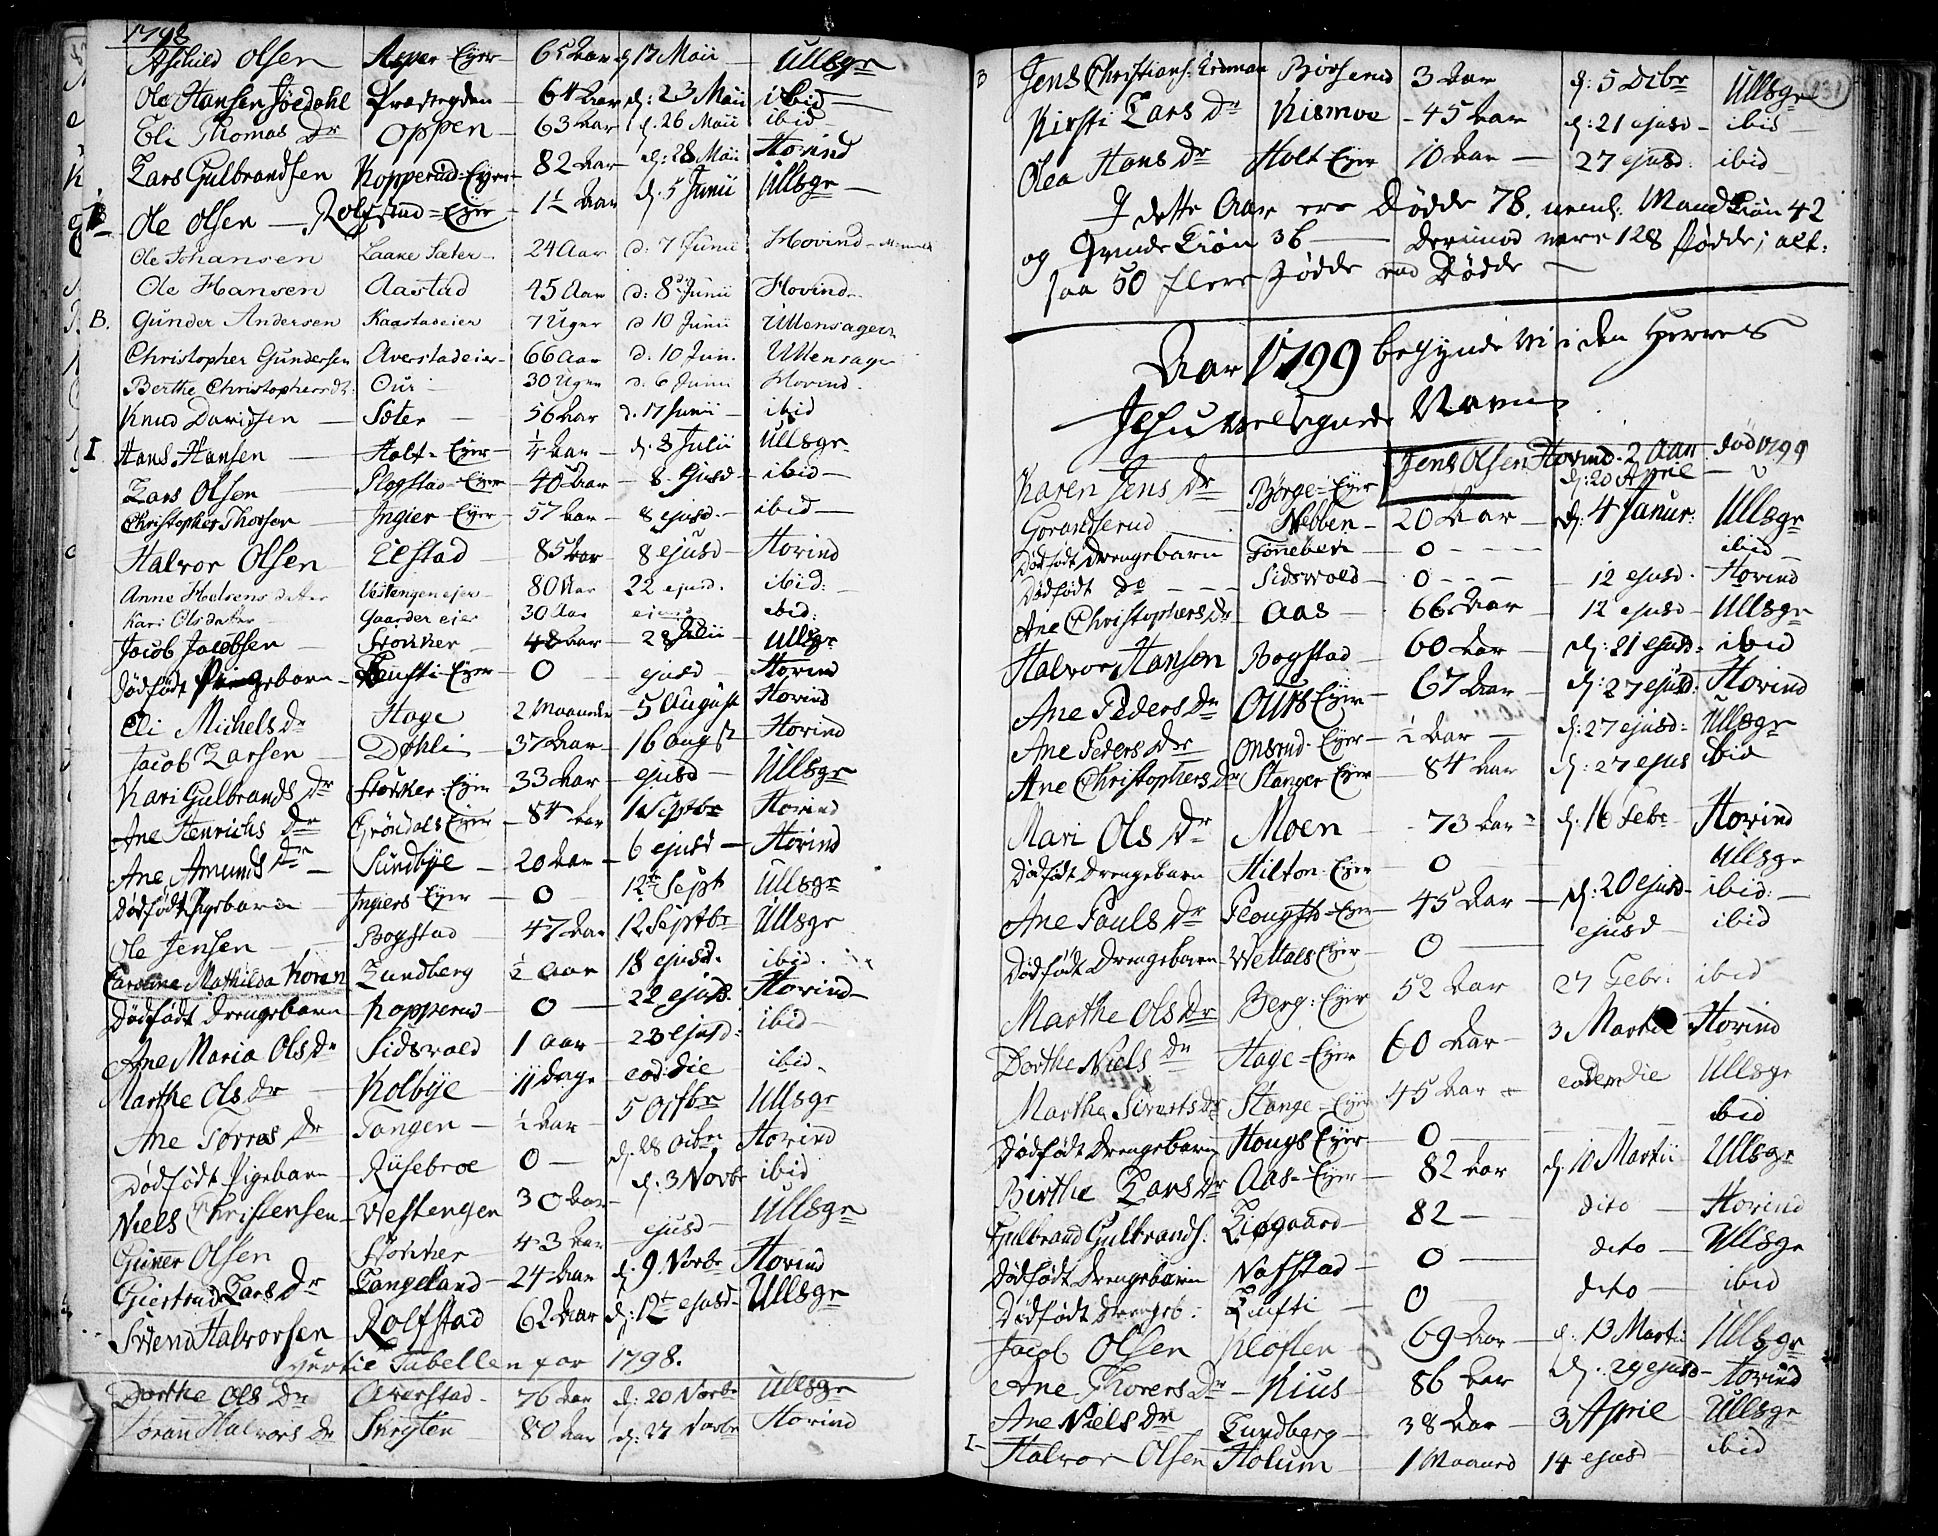 1798
Olsen Asper-Eyer 65 Aar d 17 Maii Ullsgr
Ole Hansen Præstegden 64 Aar d: 23 Maii ibid
Eli Thomas Dr Oppen 63 Aar d. 26 Maii ibid
Lars Gulbrandsen Kopperud-Eyer 82 Aar d: 28 Maii Hovind
Ole Olsen Rolfstad-Eyer 1½ Aar d. 5 Junii Ullsgr
Ole Johansen Laake Sæter 24 Aar d: 7 Junii Hovind
Ole Hansen Aastad 45 Aar d: 8 Junii Hovind
B. Gunder Andersen Kaastadeier 7 Uger d 10 Junii Ullensager
Christopher Gundersen Averstadeier 66 Aar d: 10 Jun. Ullensager
Berthe Christophersdt: Our 30 Uger d: 6 Junii Hovind.
Knud Davidsen Sæter 56 Aar d. 17 Junii ibid
I Hans Hansen Holt-Eyer ¼ Aar d. 3 Julii Ullsgr
Lars Olsen Plogstad-Eyer 40 Aar 8 Ejusd ibid
Christopher Thorsen Ingier-Eyer 57 Aar 8 ejusd. ibid
Halvor Olsen Lelstad 85 Aar 8 ejusd Hovind
Anne Helsens datter Vestengen ejer 80 Aar 22 ejusd. ibid.
Kari Olsdatter Gaarder eier 30 Aar ejusd ibid:
Jacob Jacobsen Stokker 48 Aar 28 Julii Ullsgr
Dødfødt Pigebarn Lufsti-Eyer 0 ejusd Hovind
Eli Michels Dr Hage 2 Maaneder 5 August Hovind
Jacob Larsen Døhli 37 Aar 16 Augst Hovind
Kari Gulbrands Dr Stokker-Eyer 33 Aar ejusd Ullsgr
Ane Henrichs Dr Grøndals Eyer 84 Aar 1 Septbr Hovind
Ane Amunds Dr Sundbye 20 Aar 6 ejusd Hovind
Dødfødt Pigebarn Ingiers-Eyer 0 12te Sept Ullsgr
Ole Jensen Bogstad 47 Aar 12 Septbr Ullsgr
Caroline Mathilda Koren Lundberg ½ Aar 18 ejusd. ibid.
Dødfødt Drengebarn Kopperud 0 22 ejusd. Hovind
Ane Maria Ols Dr Sidsvold 1 Aar 23 ejusd: ibid
Marthe Ols Dr Kolbye 11 dage eod: die ibid.
Ane Torres Dr Tangen ½ Aar 5 Octbr Ullsgr
Dødfødt Pigebarn Riisebroe 0 d. 28 Octbr Hovind
Niels Christensen Westengen 30 Aar d. 3 Novbr ibid
Guner Olsen Stokker 43 Aar ejusd Ullsgr
Giertrud Lars Dr Langeland 24 Aar d: 9 Novbr Hovind
Svend Halvorsen Rolfstad 62 Aar d: 12te ejusd Ullsgr
Tabellen for 1798.
Dorthe Ols Dr Averstad 76 Aar d: 20 Novbr Ullsgr
Halvors Dr 80 Aar d: 27 Novbr Hovind
B Jens Christians: Børserud 3 Aar d: 5 Dcbr Ullsgr
Kirsti Lars Dr Kismoe 45 Aar d: 21 ejusd ibid
Olea Hans Dr Holt-Eyer 10 Aar 27 ejusd: ibid
I dette Aar ere Dødde 78. neml: Mandkiøn 42
og Qvindekiøn 36 derimod være 128 fødde; alt:
saa 50 flere Fødde end Dødde
Aar 1799 begynde vi i den Herres
Jesu velsignede Navn
Jens Olsen Hovind. 2 Aar død 1799
d: 20 April
Karen Jens Dr Børge-Eyer
Gorandserud Nebben 20 Aar d: 4 Janur: Ullsgr
Dødfødt Drengebarn Toneberi 0 ibid
Dødfødt Do Sidsvold 0 12 ejusd. Hovind
Ane Christophers Dr Aas 66 Aar 12 ejusd Ullsgr
Halvor Hansen Bogstad 60 Aar d: 21 ejusd: ibid
Ane Peders Dr Ours Eyer 67 Aar d: 27 ejusd: Hovind
Ane Peders Dr Onsrud-Eyer ½ Aar d: 27 ejusd: Ullsgr
Ane Christophers Dr Stanger Eyer 84 Aar d: 27 ejus ibid
Mari Ols Dr Moen 73 Aar d: 16 Febr Hovind
Dødfødt Drengebarn Hilton-Eyer 0 Ullsgr
Ane Pauls Dr Plougst-Eyer 45 Aar d: 20 ejusd ibid:
Dødfødt Drengebarn Wettals Eyer 0 ejusd ibid
Marthe Ols Dr Berg-Eyer 52 Aar 27 Febr: ibid
Dorthe Niels Dr Hage-Eyer 60 Aar 3 Martii Hovind
Marthe Siverts Dr Stange-Eyer 45 Aar eodem die Ullsgr
Dødfødt Drengebarn Hougs Eyer 0 ibid
Birthe Lars Dr Aas-Eyer 82 Aar d: 10 Martii Ullsgr
Gulbrand Gulbrands: Liøgaard 82 dito Hovind
Dødfødt Drengebarn Nafstad 0 dito Ullsgr
Dødfødt Drengeb: Lufti 0 dito ibid
Jacob Olsen Kloften 69 Aar d: 13 Marti: Ullsgr
Ane Thorers Dr Kius 86 Aar d: 29 ejusd Hovind
Ane Niels Dr Lundberg 38 Aar 3 April Ullsgr
I Halvor Olsen Holum 1 Maaned 14 ejusd ibid